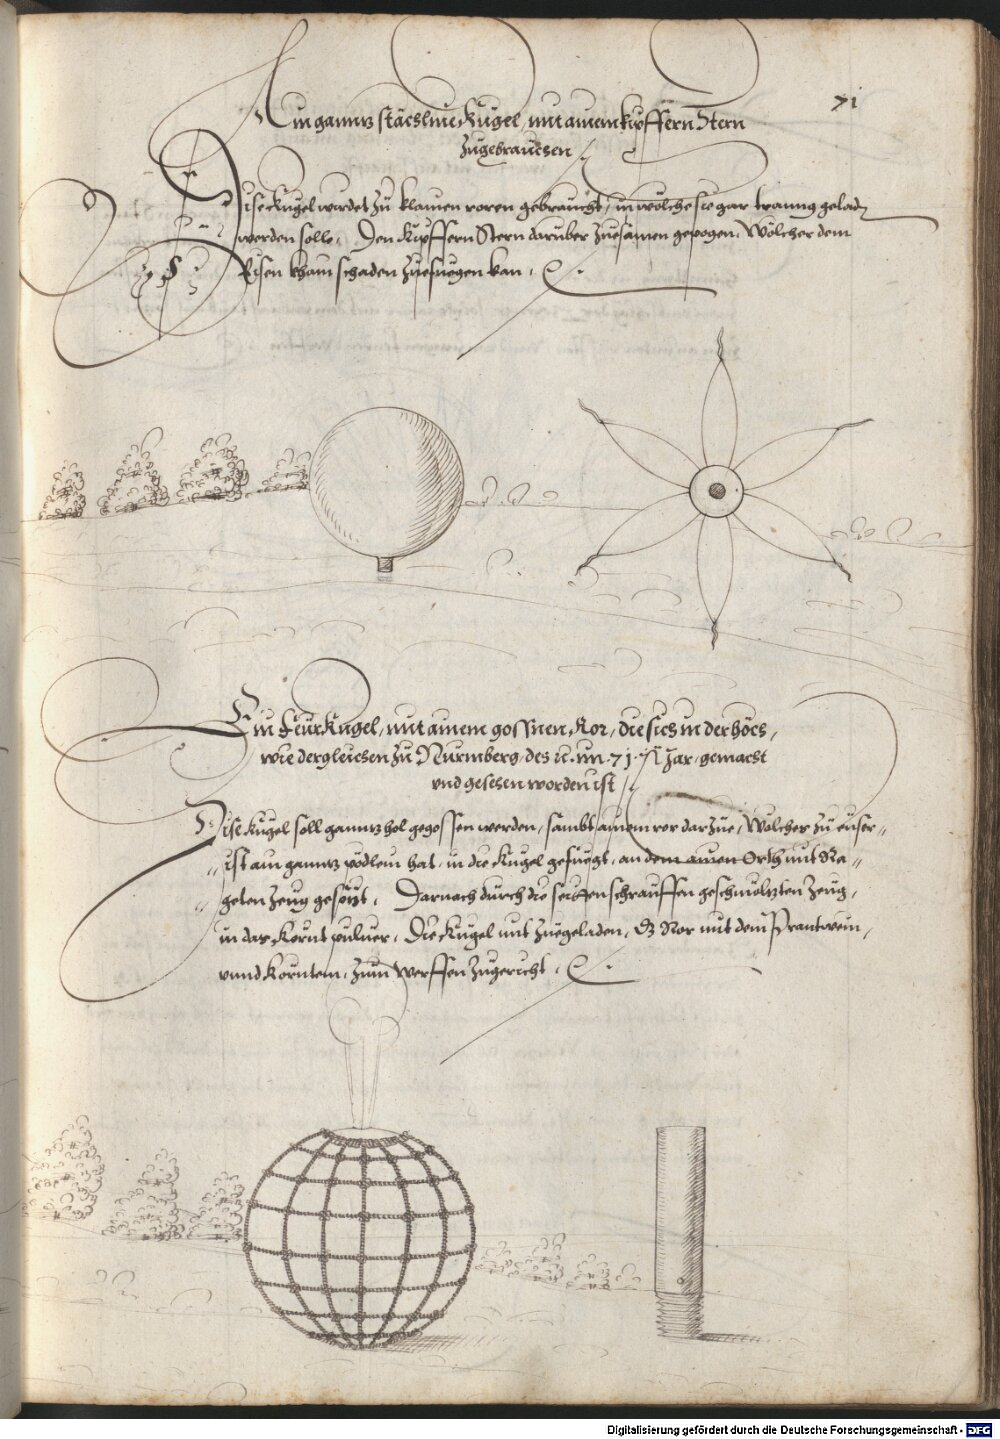 71
Ain gannz stächline Kugel, mit ainem kupffern Stern
zugebrauchen
Dise Kugel wirdet zu klainen roren gebraucht, in wölche sie gar tranng geladen
werden solle. Den Kupffern Stern darüber zuesamen gepogen, Wölcher dem
Eisen khain schaden zuefuegen kan.
Ein Feur Kugel, mit ainem gossnen Ror, die sich in der höch,
wie dergleichen zu Nurmberg, des im 71. Jar, gemacht
vnd gesehen worden ist
Dise Kugel soll ganntz hol gegossen werden, sambt ainem ror darzue, Wölcher zu eusser-
ist ain ganntz pödlein hat, in die Kugel gefuegt, an dem ainen Orth mit Ra-
geten Zeug gesetzt. Darnach durch die schrauffen geschmoltzten Zeug,
in das Kornt puluer, Die Kugel mit zuegeladen, Dz Ror mit dem Prantwein,
vnnd Korntem, zum werffen zugericht.
Digitalisierung gefördert durch die Deutsche Forschungsgemeinschaft - DFG